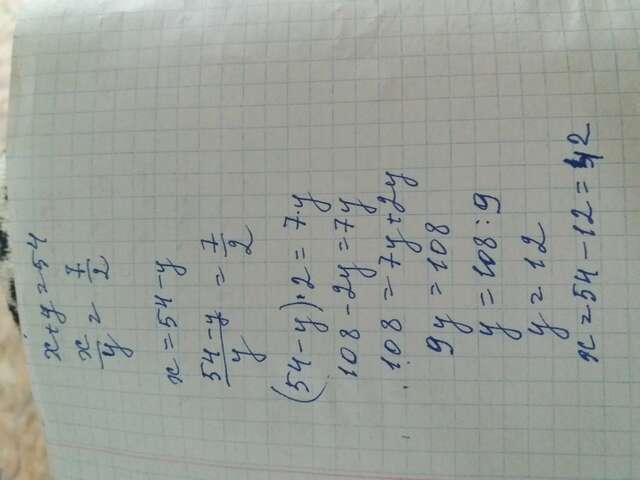 x+y=54
x/y = 7/2
x=54-y
54-y/y = 7/2
(54-y)·2=7·y
108-2y=7y
108=7y+2y
9y=108
y=108:9
y=12
x=54-12=42